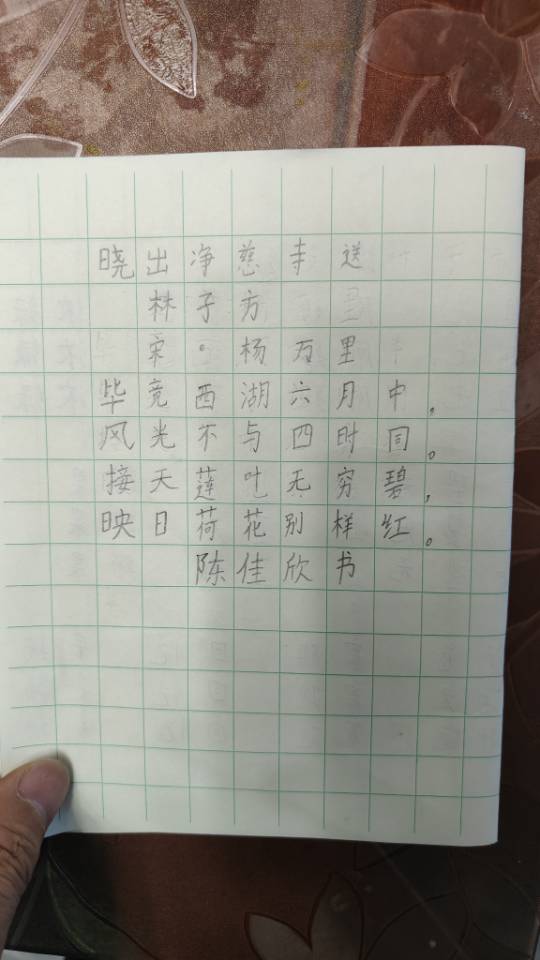 晓出净慈寺送
林子方
宋·杨万里
毕竟西湖六月中，
风光不与四时同。
接天莲叶无穷碧，
映日荷花别样红。
陈佳欣书